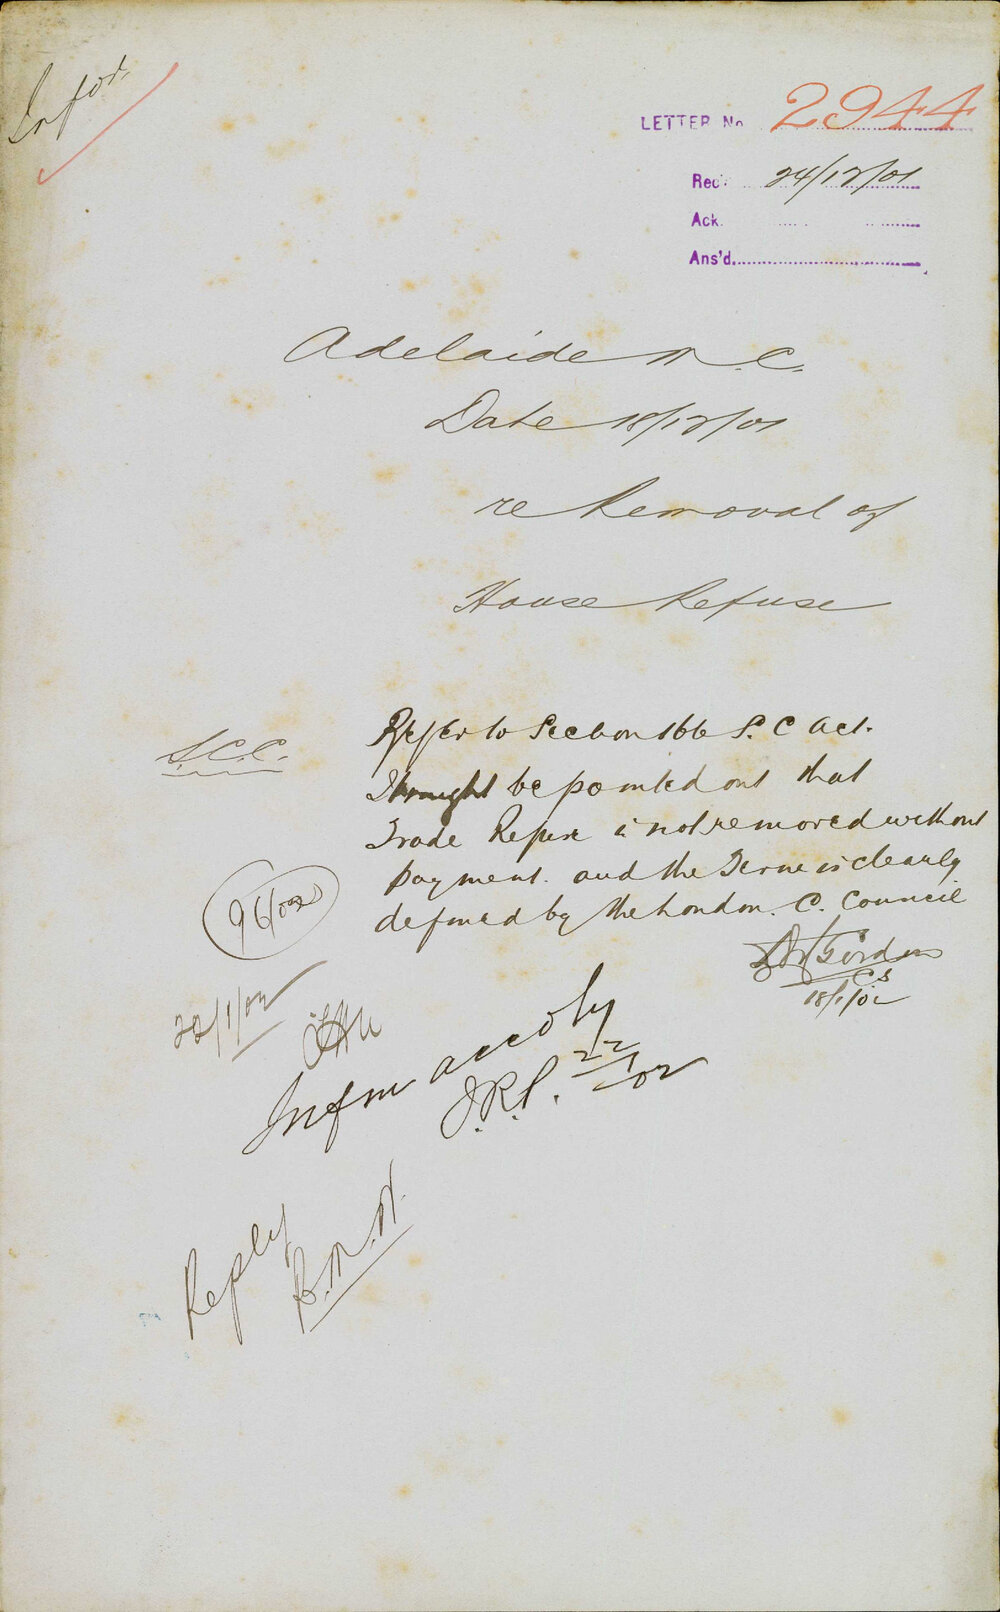 Infor.
LETTER No 2944
Rec. 24/12/01
Ack.
Ans'd.
Adelaide M.C.
Date 18/12/01
re Removal of
House Refuse
S.C.C.
Refer to Section 166 S. C Act.
It might be pointed out that
Trade Refuse is not removed without
payment. and the Term is clearly
defined by the London. C. Council
Gordon
C.S
18/1/02
96/02
22/1/02
Infm accdly
J.R.P. 22/1/02
Reply